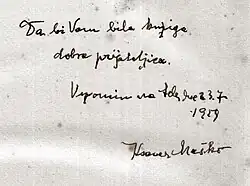 Da bi Vam bila knjiga
dobra prijateljica.
V spomin na 23. 7.
1959
Ksaver Meško